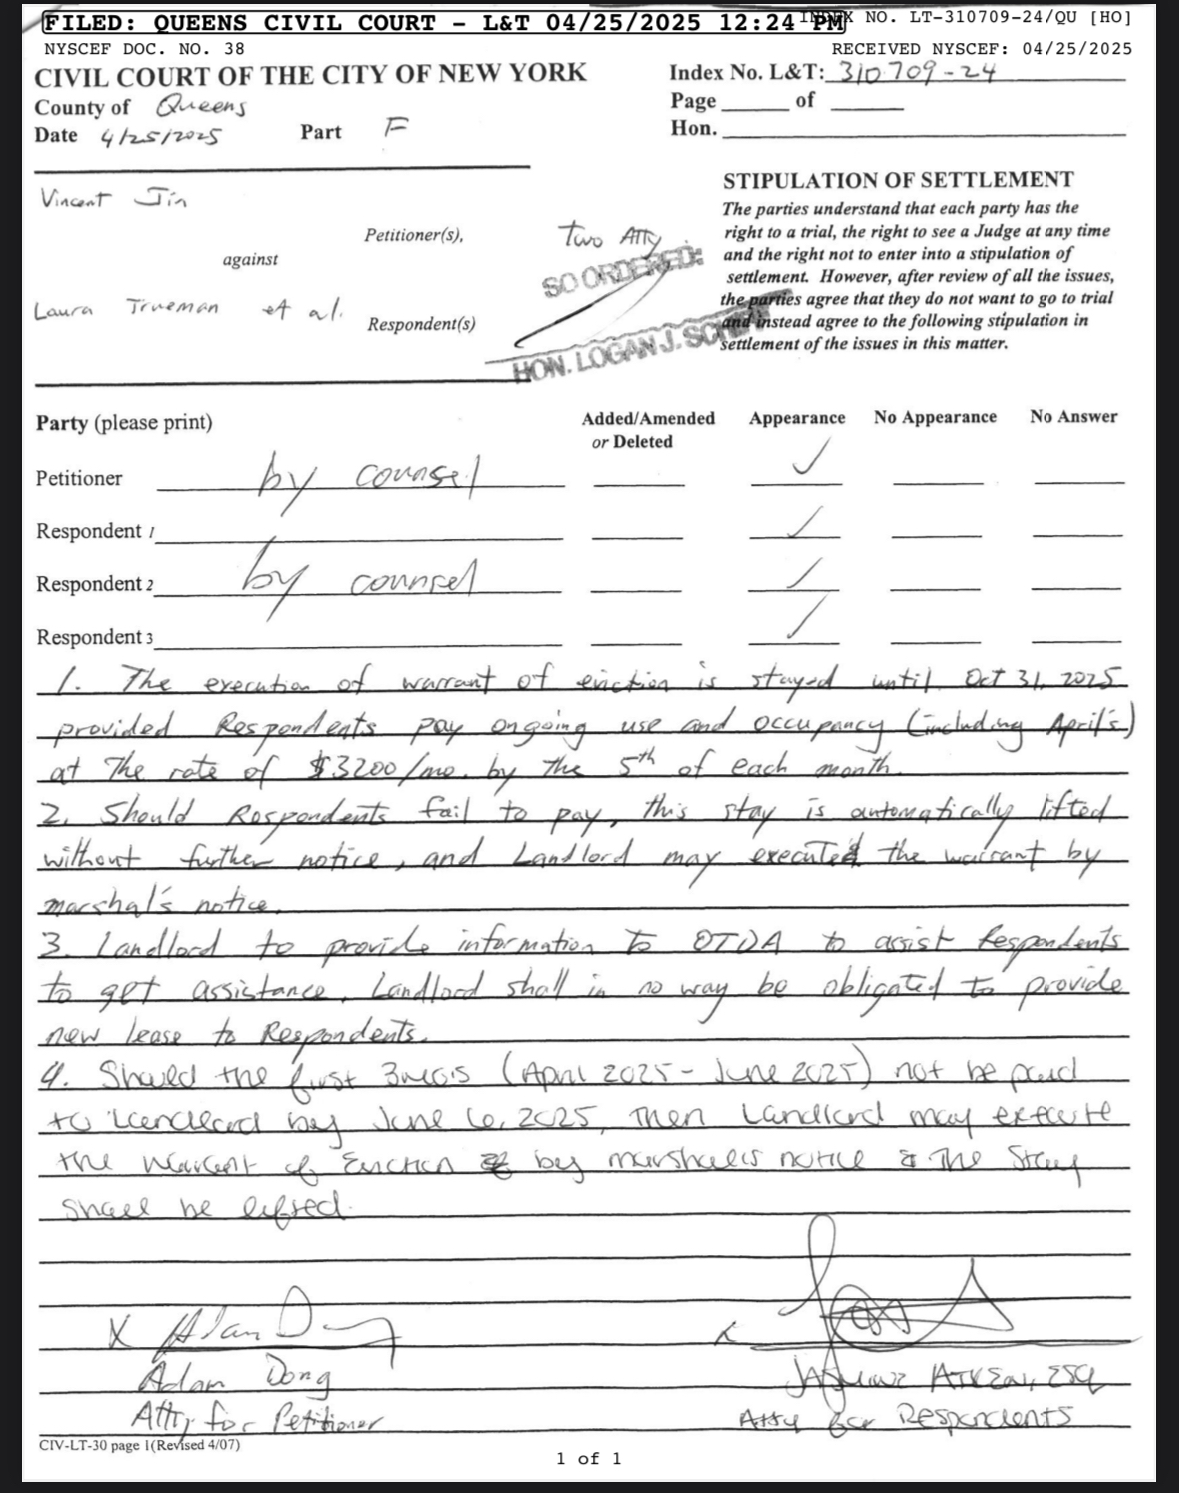 FILED: QUEENS CIVIL COURT - L&T 04/25/2025 12:24 PM
INDEX NO. LT-310709-24/QU [HO]
NYSCEF DOC. NO. 38
RECEIVED NYSCEF: 04/25/2025
CIVIL COURT OF THE CITY OF NEW YORK
County of Queens
Date 4/25/2025 Part F
Index No. L&T: 310709-24
Page ____ of ____
Hon.
Vincent Jin
Petitioner(s),
against
Laura Trueman et al.
Respondent(s)
Two Atty
SO ORDERED:
HON. LOGAN J.
STIPULATION OF SETTLEMENT
The parties understand that each party has the
right to a trial, the right to see a Judge at any time
and the right not to enter into a stipulation of
settlement. However, after review of all the issues,
the parties agree that they do not want to go to trial
and instead agree to the following stipulation in
settlement of the issues in this matter.
Party (please print) Added/Amended or Deleted Appearance No Appearance No Answer
Petitioner by counsel ✓
Respondent 1 ✓
Respondent 2 by counsel ✓
Respondent 3 ✓
1. The execution of warrant of eviction is stayed until Oct 31, 2025
provided Respondents pay ongoing use and occupancy (including April's)
at the rate of $3200/mo. by the 5th of each month.
2. Should Respondents fail to pay, this stay is automatically lifted
without further notice, and Landlord may execute the warrant by
marshal's notice.
3. Landlord to provide information to OTDA to assist Respondents
to get assistance. Landlord shall in no way be obligated to provide
new lease to Respondents.
4. Should the first 3 mos (April 2025 - June 2025) not be paid
to Landlord by June 6, 2025, then Landlord may execute
the warrant of Eviction by marshall's notice & the Stay
shall be lifted.
X Adam Dong
Adam Dong
Atty for Petitioner
x
ESQ
Atty for Respondents
CIV-LT-30 page 1(Revised 4/07)
1 of 1